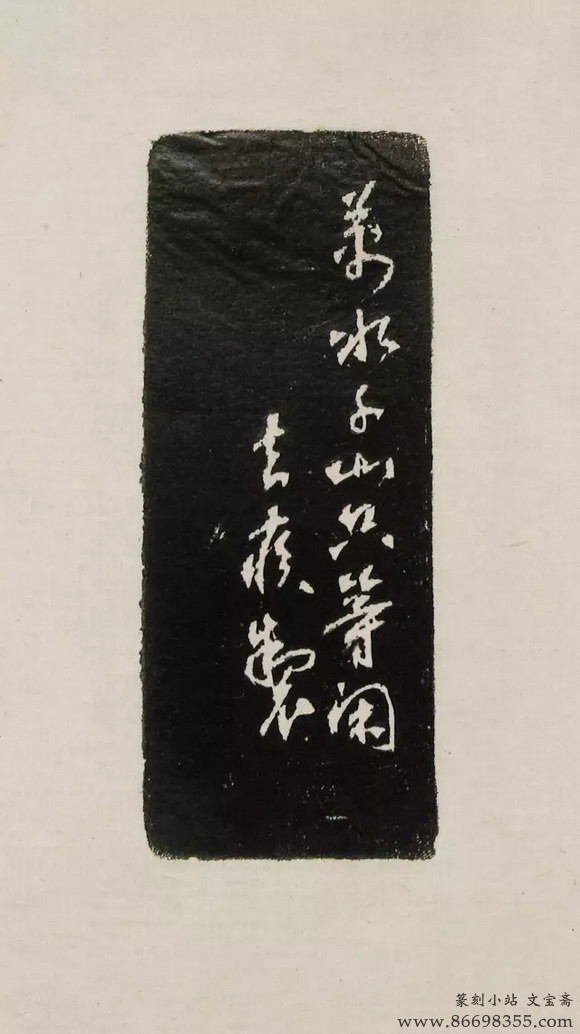 萬水千山只等闲
去疾製
篆刻小站 文宝斋
www.86698355.com